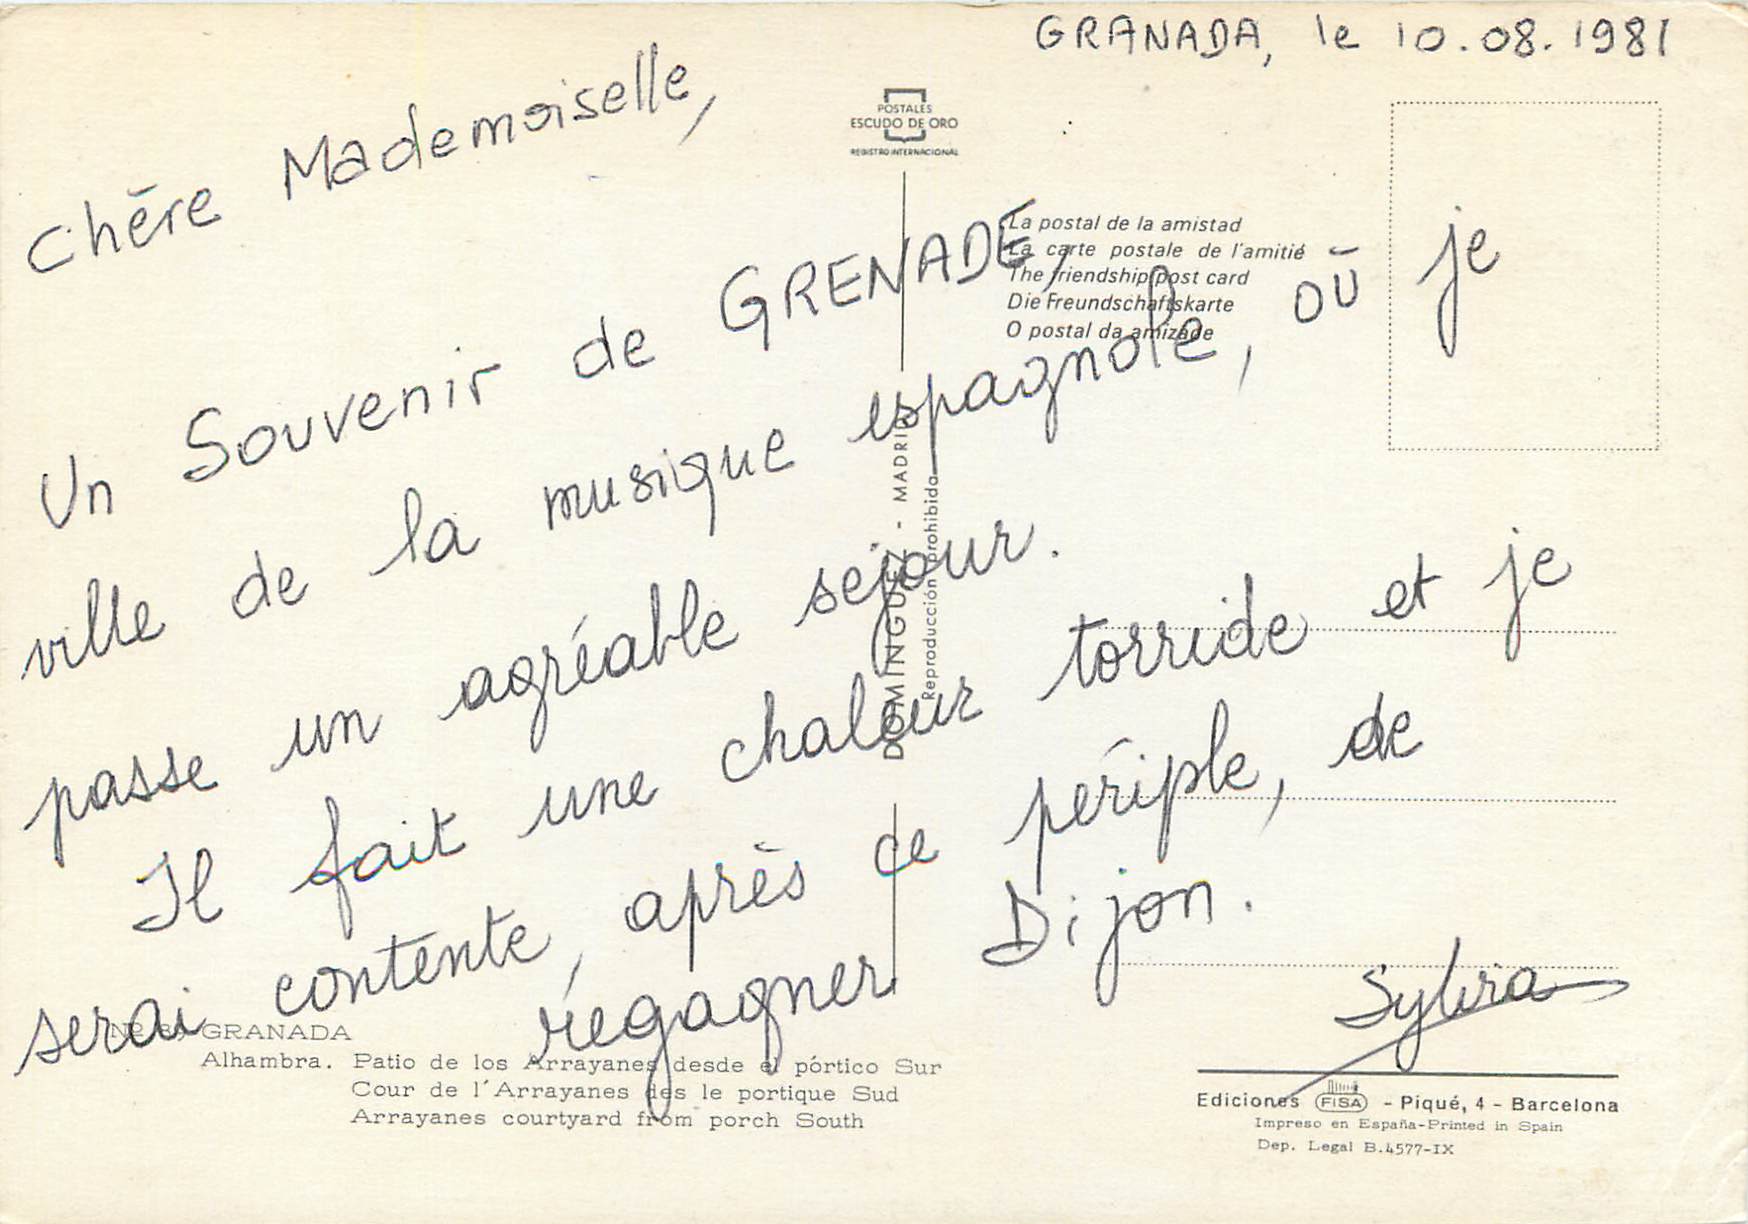 GRANADA, le 10.08.1981
Chère Mademoiselle,
Un Souvenir de GRENADE,
ville de la musique espagnole, où je
passe un agréable sejour.
Il fait une chaleur torride et je
serai contente, après ce périple, de
régagner Dijon.
Sylvia
POSTALES
ESCUDO DE ORO
REGISTRO INTERNACIONAL
La postal de la amistad
La carte postale de l'amitié
The friendship post card
Die Freundschaftskarte
O postal da amizade
DOMINGUEZ - MADRID
Reproducción prohibida
GRANADA
Alhambra. Patio de los Arrayanes desde el pórtico Sur
Cour de l'Arrayanes des le portique Sud
Arrayanes courtyard from porch South
Ediciones FISA - Piqué, 4 - Barcelona
Impreso en España-Printed in Spain
Dep. Legal B.4577-IX